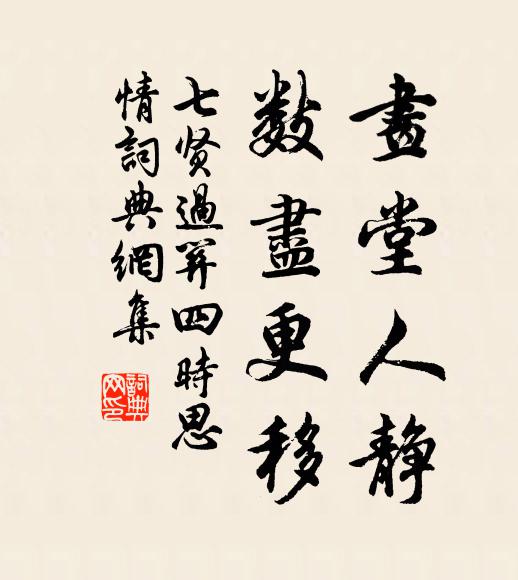 畫堂人静
數盡更移
七贤過關四時思
情詞典網集
詞典
网印